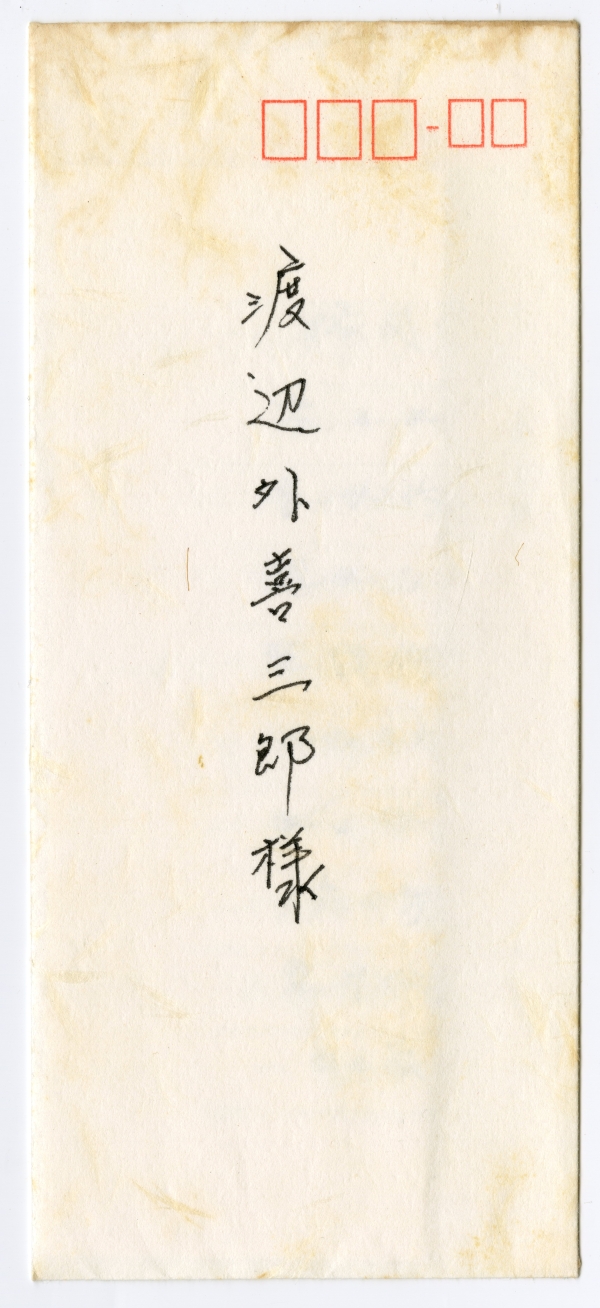 渡辺外喜三郎様